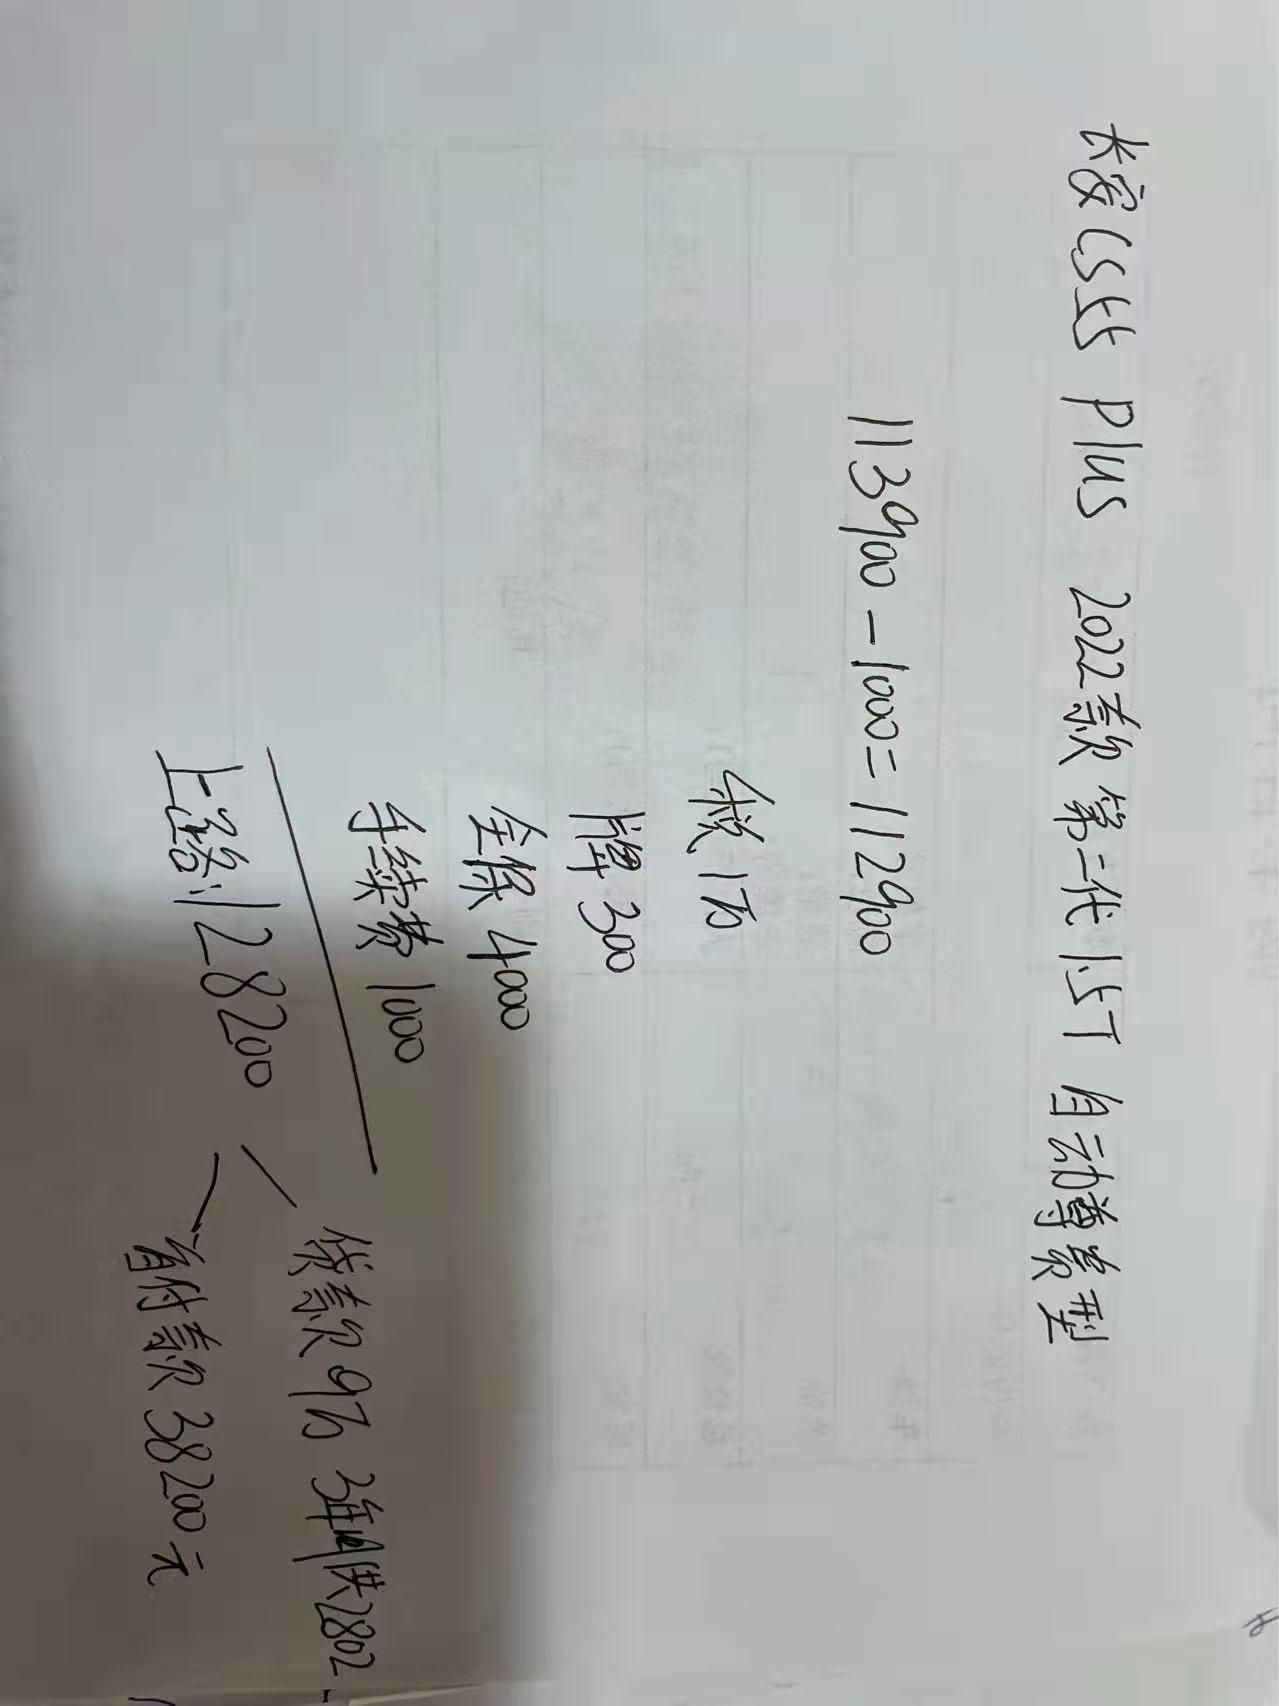 长安CS55 plus 2022款 第二代1.5T 自动尊贵型
113900-1000=112900
税1万
牌300
全保4000
手续费1000
上路:128200
贷款9万 3年月供2802
首付款38200元